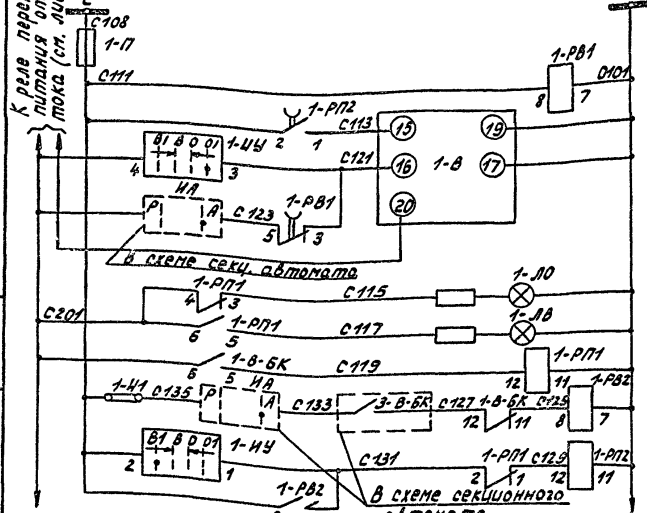 К реле пере
питания оп
тока (см. ли
С108
1-П
С111
1-РВ1
0101
8 7
1-РП2
2 1
С113
15
19
В1 В О О1
1-ИУ
4 3
С121
16
1-В
17
ИА
Р А
С123
1-РВ1
5 3
20
В схеме секц. автомата
1-РП1
4 3
С115
1-ЛО
С201
6 5
1-РП1
С117
1-ЛВ
6 5
1-В-БК
С119
1-РП1
12 11
1-И1
С135
ИА
Р А
С133
3-В-БК
С127
1-В-БК
12 11
С125
1-РВ2
8 7
В1 В О О1
1-ИУ
2 1
С131
1-РП1
2 1
С129
1-РП2
12 11
1-РВ2
В схеме секционного
автомата